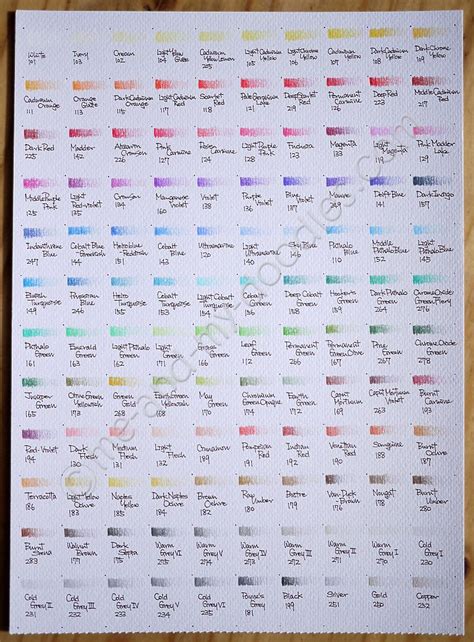 White Ivory Cream Light Yellow Glaze Cadmium Yellow Lemon Light Cadmium Yellow Light Chrome Yellow Cadmium Yellow Dark Cadmium Yellow Dark Chrome Yellow
101 103 102 104 205 105 106 107 108 109
Cadmium Orange Orange Glaze Dark Cadmium Orange Light Cadmium Red Scarlet Red Pale Geranium Lake Deep Scarlet Red Permanent Carmine Deep Red Middle Cadmium Red
111 113 115 117 118 121 219 223 217
Dark Red Madder Alizarin Crimson Pink Carmine Rose Carmine Light Purple Pink Fuchsia Magenta Light Magenta Pink Madder Lake
225 142 226 127 124 128 123 133 119 129
Middle Purple Pink Light Red-Violet Crimson Manganese Violet Violet Purple Violet Blue Violet Mauve Delft Blue Dark Indigo
125 135 134 160 138 136 137 249 141 157
Indanthrene Blue Cobalt Blue Greenish Helio Blue Reddish Cobalt Blue Ultramarine Light Ultramarine Phthalo Blue Middle Phthalo Blue Light Phthalo Blue
247 144 151 143 120 140 110 152 145
Bluish Turquoise Prussian Blue Helio Turquoise Cobalt Turquoise Light Cobalt Turquoise Cobalt Green Deep Cobalt Green Hooker's Green Dark Phthalo Green Chrome Oxide Green Fiery
149 246 155 153 154 156 158 159 264 276
Phthalo Green Emerald Green Light Phthalo Green Light Green Grass Green Leaf Green Permanent Green Permanent Green Olive Pine Green Chrome Oxide Green
161 163 162 171 166 112 266 167 267 278
Juniper Green Olive Green Yellowish Green Gold Earth Green Yellowish May Green Chromium Green Opaque Earth Green Caput Mortuum Caput Mortuum Violet
165 173 268 168 170 174 172 169 263
Red-Violet Dark Flesh Medium Flesh Light Flesh Cinnamon Pompeian Red Indian Red Venetian Red Sanguine Burnt Ochre
194 130 131 132 189 191 192 190 188 187
Terracotta Light Yellow Ochre Naples Yellow Dark Naples Ochre Brown Ochre Raw Umber Bistre Van-Dyck Brown Nougat Burnt Umber
186 183 185 184 182 180 179 176 178 280
Burnt Siena Walnut Brown Dark Sepia Warm Grey VI Warm Grey V Warm Grey IV Warm Grey III Warm Grey II Warm Grey I Cold Grey I
283 177 175 275 274 273 272 271 270 230
Cold Grey II Cold Grey III Cold Grey IV Cold Grey V Cold Grey VI Payne's Grey Black Silver Gold Copper
231 232 233 234 235 181 199 251 250 252
©me-and-my-noodles.com